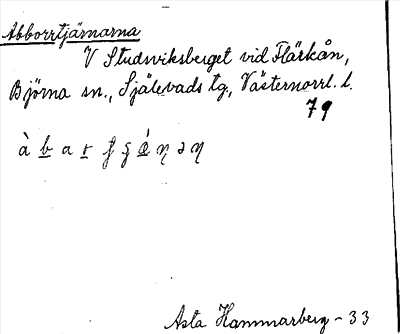 Abborrtjärnarna
V Studsviksberget vid Flärkån,
Björna sn., Själevads tg., Västernorrl. l.
79
à b a r f ç ǽ ŋ ə ŋ
Asta Hammarberg - 33